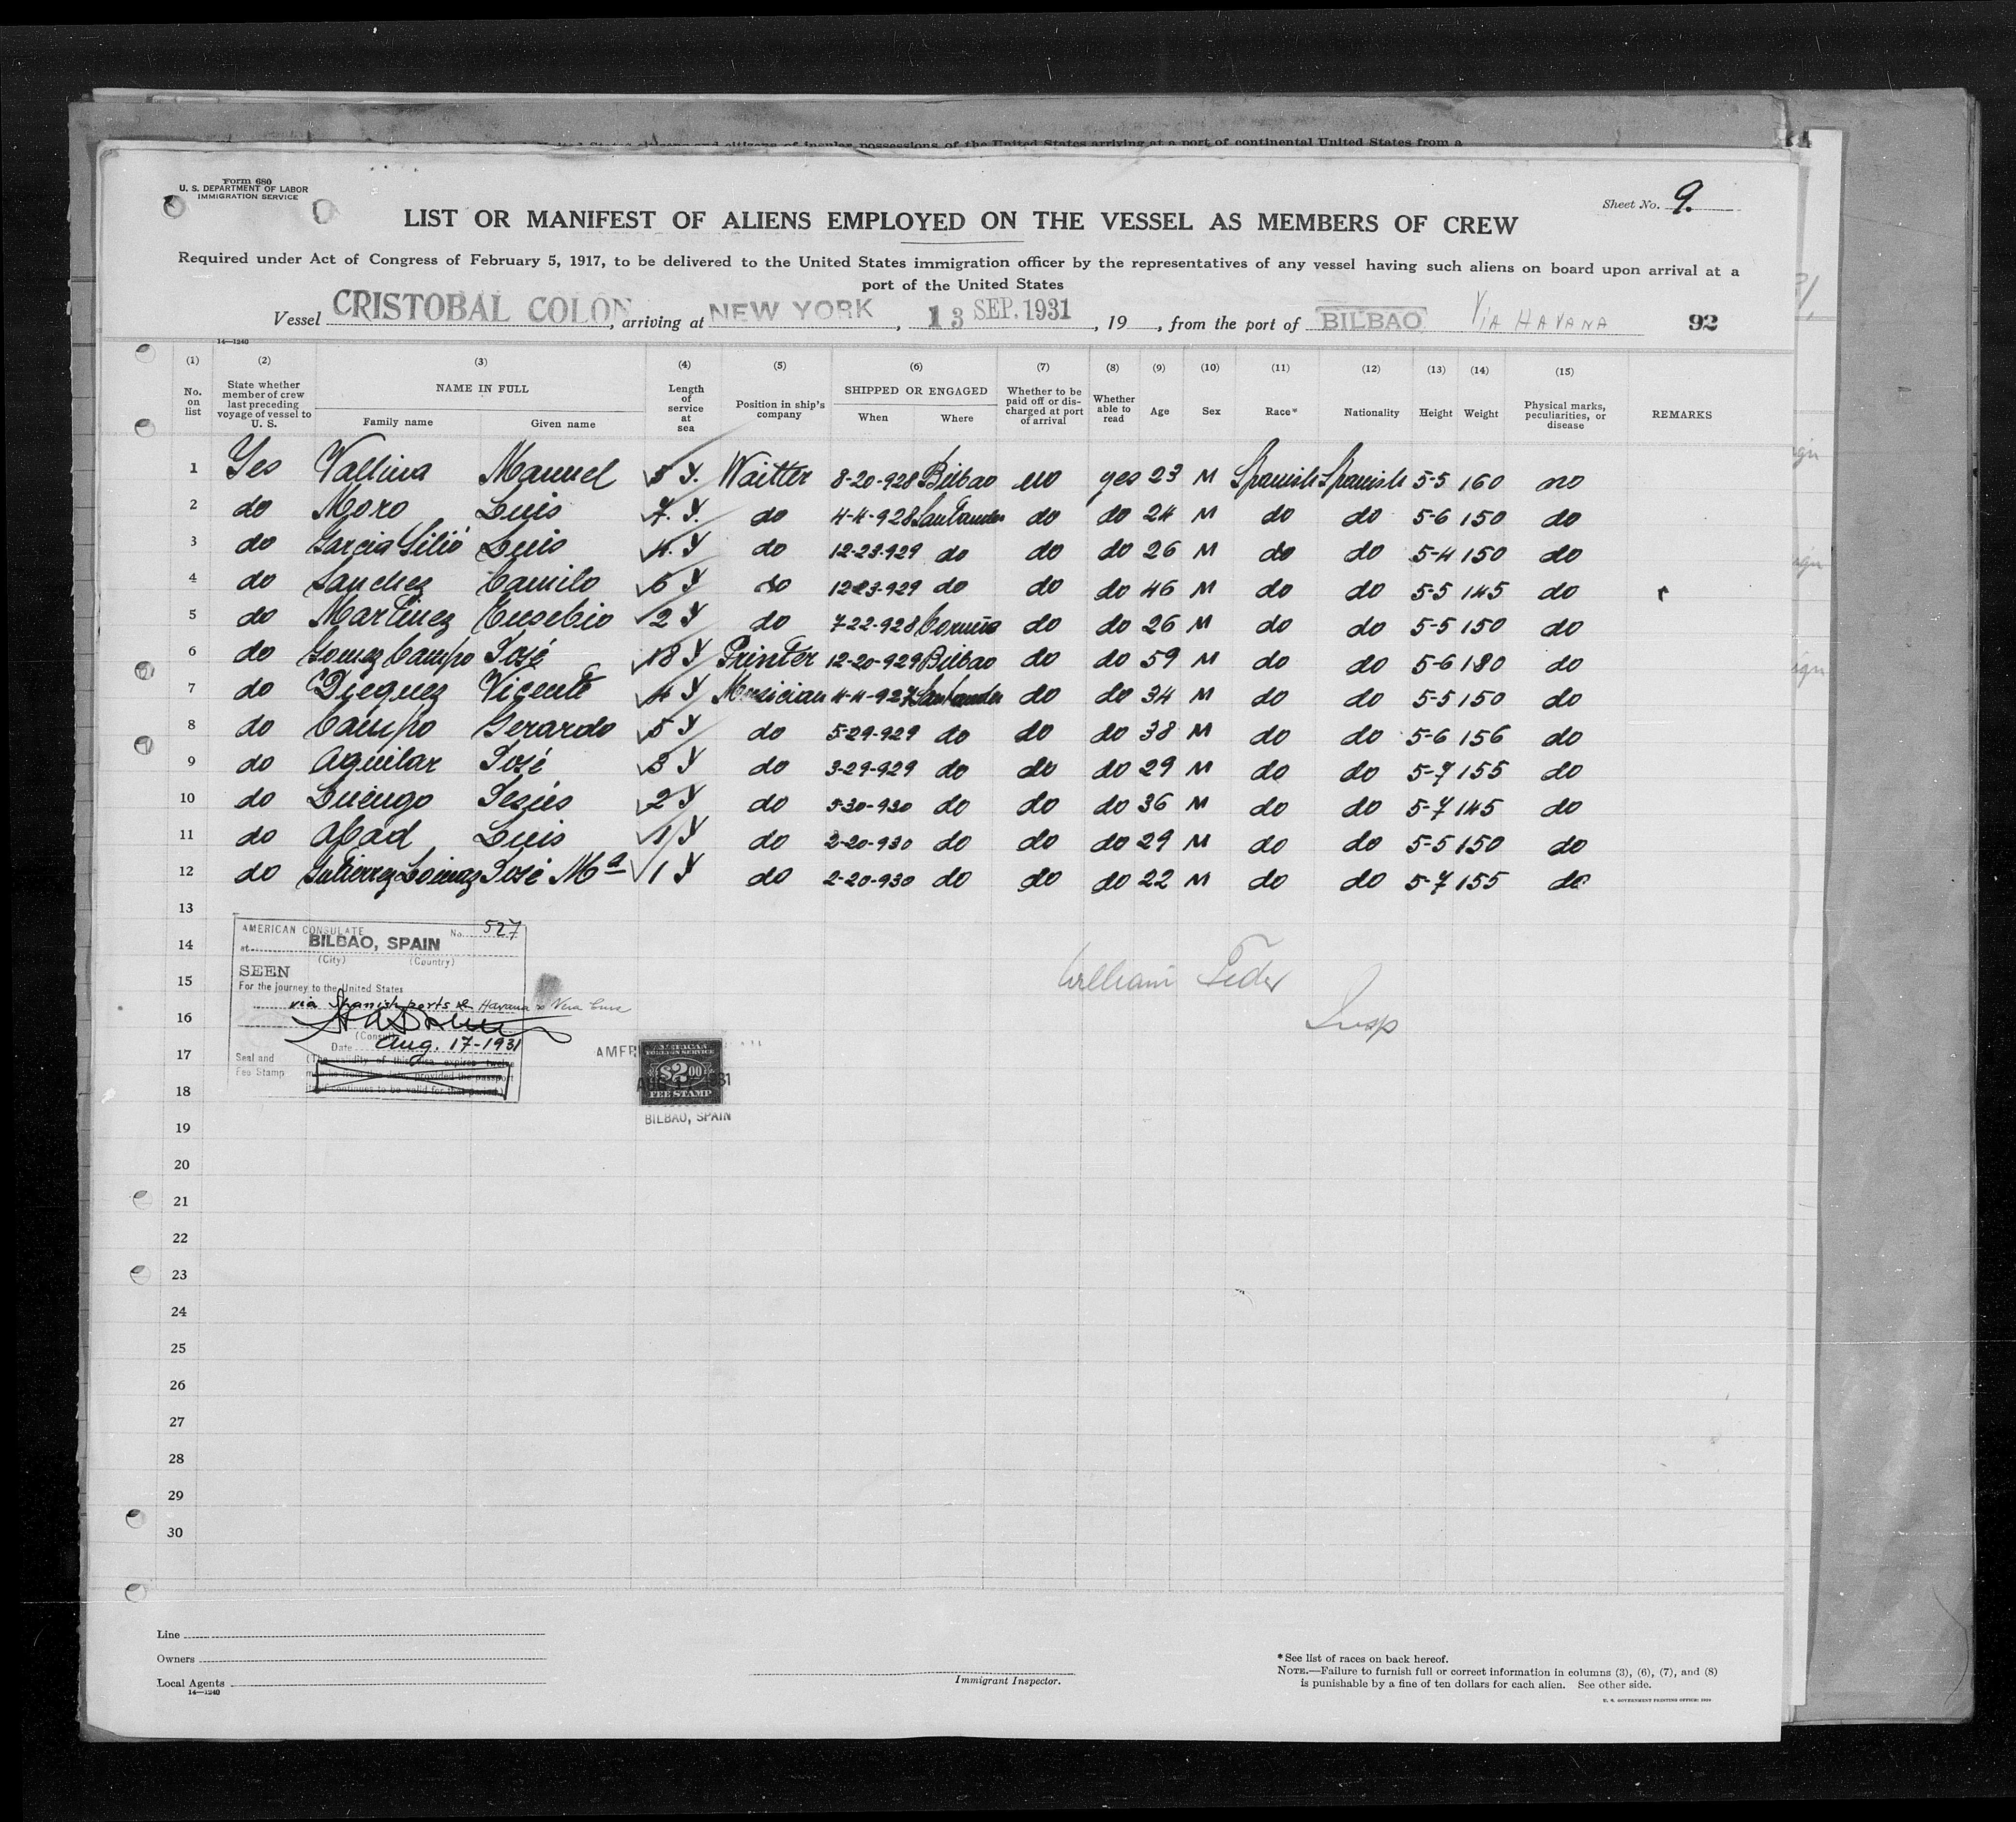 United States citizens and citizens of insular possessions of the United States arriving at a port of continental United States from a
Form 680
U. S. DEPARTMENT OF LABOR
IMMIGRATION SERVICE
Sheet No. 9.
LIST OR MANIFEST OF ALIENS EMPLOYED ON THE VESSEL AS MEMBERS OF CREW
Required under Act of Congress of February 5, 1917, to be delivered to the United States immigration officer by the representatives of any vessel having such aliens on board upon arrival at a
port of the United States
Vessel CRISTOBAL COLON, arriving at NEW YORK, 13 SEP. 1931, 19 , from the port of BILBAO VIA HAVANA 92
14—1240
(1) (2) (3) (4) (5) (6) (7) (8) (9) (10) (11) (12) (13) (14) (15)
No. on list State whether member of crew last preceding voyage of vessel to U. S. NAME IN FULL Length of service at sea Position in ship's company SHIPPED OR ENGAGED Whether to be paid off or discharged at port of arrival Whether able to read Age Sex Race* Nationality Height Weight Physical marks, peculiarities, or disease REMARKS
Family name Given name When Where
1 Yes Vallina Manuel 5 Y. Waitter 8-20-928 Bilbao no yes 23 M Spanish Spanish 5-5 160 no
2 do Moro Luis 7. Y. do 4-4-928 Santander do do 24 M do do 5-6 150 do
3 do Garcia Gilió Luis 4. Y do 12-23-929 do do do 26 M do do 5-4 150 do
4 do Sanchez Camilo 6 Y do 12-23-929 do do do 46 M do do 5-5 145 do
5 do Martinez Eusebio 2 Y do 7-22-928 Coruña do do 26 M do do 5-5 150 do
6 do Gomez Campo José 18 Y Printer 12-20-929 Bilbao do do 59 M do do 5-6 180 do
7 do Dieguez Vicente 4 Y Musician 4-4-927 Santander do do 34 M do do 5-5 150 do
8 do Campo Gerardo 5 Y do 5-29-929 do do do 38 M do do 5-6 156 do
9 do Aguilar José 3 Y do 3-29-929 do do do 29 M do do 5-7 155 do
10 do Luengo Jesús 2 Y do 5-30-930 do do do 36 M do do 5-7 145 do
11 do Abad Luis 1 Y do 2-20-930 do do do 29 M do do 5-5 150 do
12 do Gutierrez José Mª 1 Y do 2-20-930 do do do 22 M do do 5-7 155 do
13
14
15
16
17
18
19
20
21
22
23
24
25
26
27
28
29
30
AMERICAN CONSULATE No. 527
at BILBAO, SPAIN
(City) (Country)
SEEN
For the journey to the United States
via Spanish ports & Havana & Vera Cruz
(Consul)
Date Aug. 17-1931
Seal and Fee Stamp
(The validity of this visa expires twelve
months from this date, provided the passport
itself continues to be valid for that period.)
AMERICAN
FOREIGN SERVICE
$2.00
FEE STAMP
BILBAO, SPAIN
William
Insp
Line
Owners
Local Agents
14—1240
Immigrant Inspector.
*See list of races on back hereof.
NOTE.—Failure to furnish full or correct information in columns (3), (6), (7), and (8)
is punishable by a fine of ten dollars for each alien. See other side.